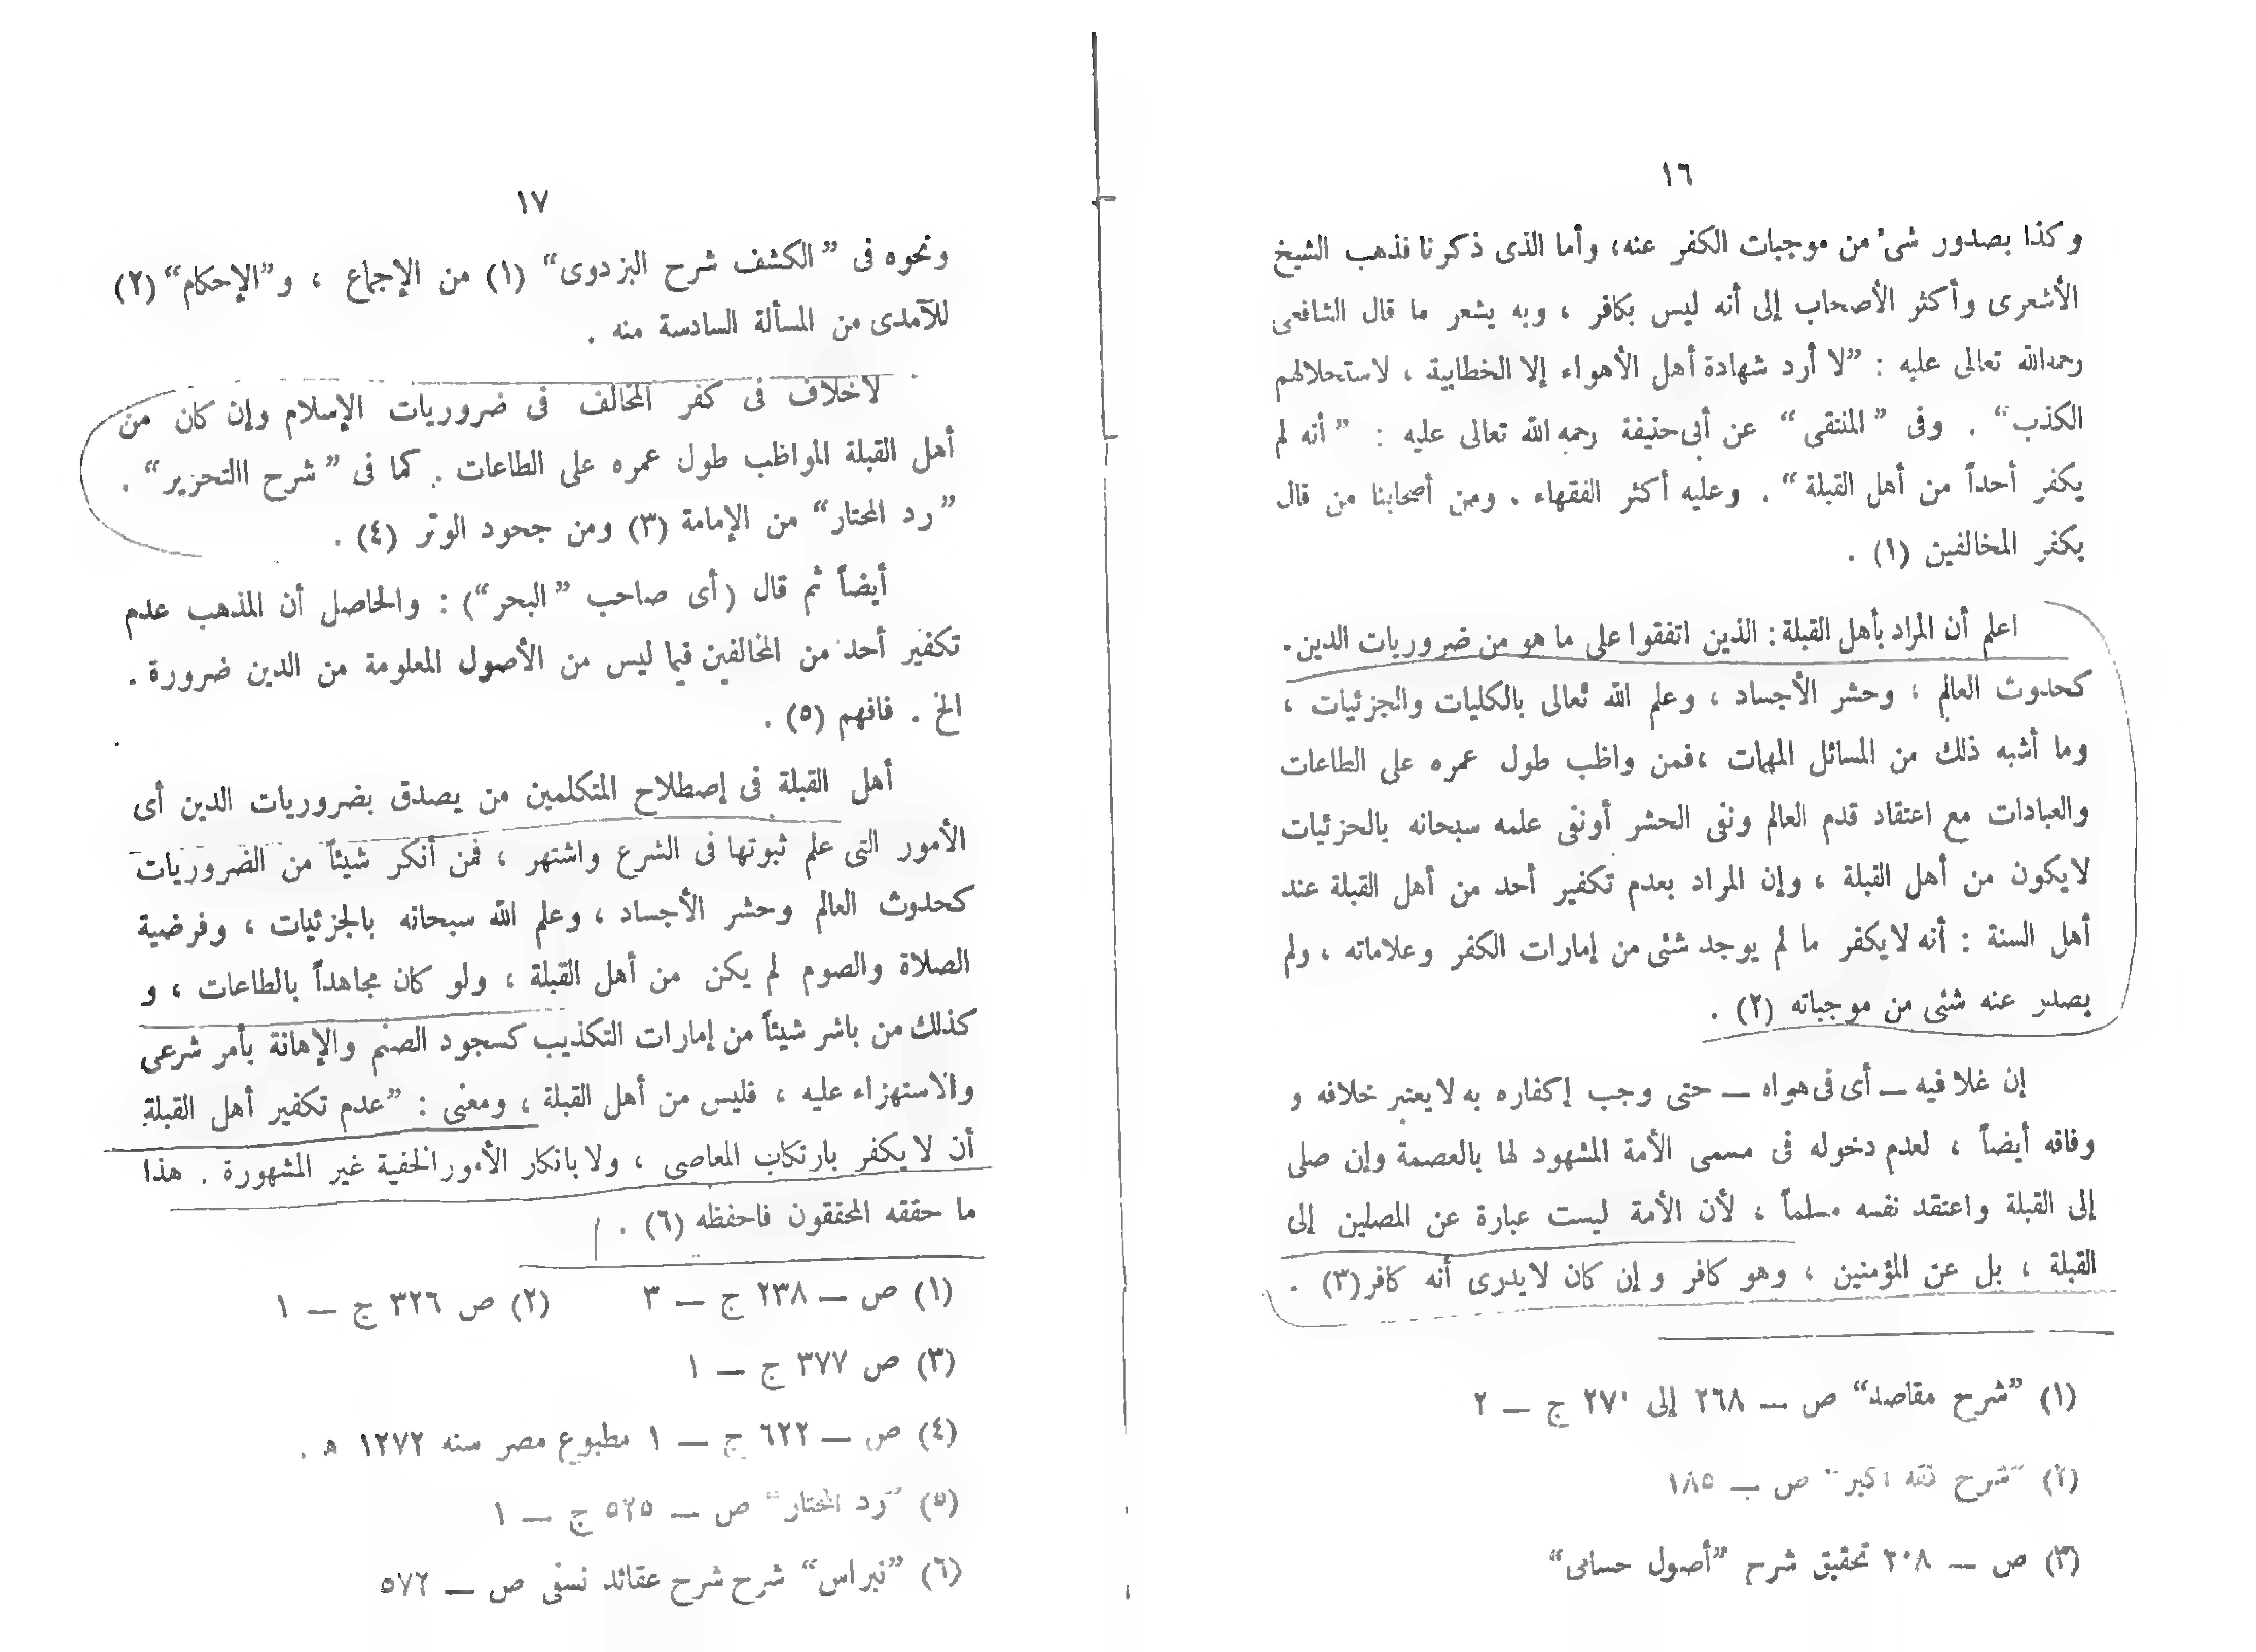 ١٦
وكذا بصدور شىء من موجبات الكفر عنه، وأما الذى ذكرنا فذهب الشيخ
الأشعرى وأكثر الأصحاب إلى أنه ليس بكافر ، وبه يشعر ما قال الشافعى
رحمه الله تعالى عليه : ”لا أرد شهادة أهل الأهواء إلا الخطابية ، لاستحلالهم
الكذب“ . وفى ”المنتقى“ عن أبى حنيفة رحمه الله تعالى عليه : ”أنه لم
يكفر أحداً من أهل القبلة“ . وعليه أكثر الفقهاء . ومن أصحابنا من قال
يكفر المخالفين (١) .
اعلم أن المراد بأهل القبلة : الذين اتفقوا على ما هو من ضروريات الدين.
كحدوث العالم ، وحشر الأجساد ، وعلم الله تعالى بالكليات والجزئيات ،
وما أشبه ذلك من المسائل المهمات ، فمن واظب طول عمره على الطاعات
والعبادات مع اعتقاد قدم العالم ونفى الحشر أونفى علمه سبحانه بالجزئيات
لايكون من أهل القبلة ، وإن المراد بعدم تكفير أحد من أهل القبلة عند
أهل السنة : أنه لايكفر ما لم يوجد شئى من إمارات الكفر وعلاماته ، ولم
يصدر عنه شئى من موجباته (٢) .
إن غلا فيه — أى فى هواه — حتى وجب إكفاره به لايعتبر خلافه و
وفاقه أيضاً ، لعدم دخوله فى مسمى الأمة المشهود لها بالعصمة وإن صلى
إلى القبلة واعتقد نفسه مسلماً ، لأن الأمة ليست عبارة عن المصلين إلى
القبلة ، بل عن المؤمنين ، وهو كافر وإن كان لايدرى أنه كافر (٣) .
(١) ”شرح مقاصد“ ص — ٢٦٨ إلى ٢٧٠ ج — ٢
(٢) ”شرح فقه اكبر“ ص — ١٨٥
(٣) ص — ٢٠٨ تحقيق شرح ”أصول حسامى“
١٧
ونحوه فى ”الكشف شرح البزدوى“ (١) من الإجماع ، و”الإحكام“ (٢)
للآمدى من المسألة السادسة منه .
لاخلاف فى كفر المخالف فى ضروريات الإسلام وإن كان من
أهل القبلة المواظب طول عمره على الطاعات . كما فى ”شرح االتحزير“ .
”رد المحتار“ من الإمامة (٣) ومن جحود الوتر (٤) .
أيضاً ثم قال (أى صاحب ”البحر“) : والحاصل أن المذهب عدم
تكفير أحد من المخالفين فيما ليس من الأصول المعلومة من الدين ضرورة .
الخ . فافهم (٥) .
أهل القبلة فى إصطلاح المتكلمين من يصدق بضروريات الدين أى
الأمور التى علم ثبوتها فى الشرع واشتهر ، فمن أنكر شيئاً من الضروريات
كحدوث العالم وحشر الأجساد ، وعلم الله سبحانه بالجزئيات ، وفرضية
الصلاة والصوم لم يكن من أهل القبلة ، ولو كان مجاهداً بالطاعات ، و
كذلك من باشر شيئاً من إمارات التكذيب كسجود الصنم والإهانة بأمر شرعى
والاستهزاء عليه ، فليس من أهل القبلة ، ومعنى : ”عدم تكفير أهل القبلة
أن لا يكفر بارتكاب المعاصى ، ولا بانكار الأمور الخفية غير المشهورة . هذا
ما حققه المحققون فاحفظه (٦) .
(١) ص — ٢٣٨ ج — ٣ (٢) ص ٣٢٦ ج — ١
(٣) ص ٣٧٧ ج — ١
(٤) ص — ٦٢٢ ج — ١ مطبوع مصر سنه ١٢٧٢ ه .
(٥) ”رد المحتار“ ص — ٥٢٥ ج — ١
(٦) ”نبراس“ شرح شرح عقائد نسفى ص — ٥٧٢